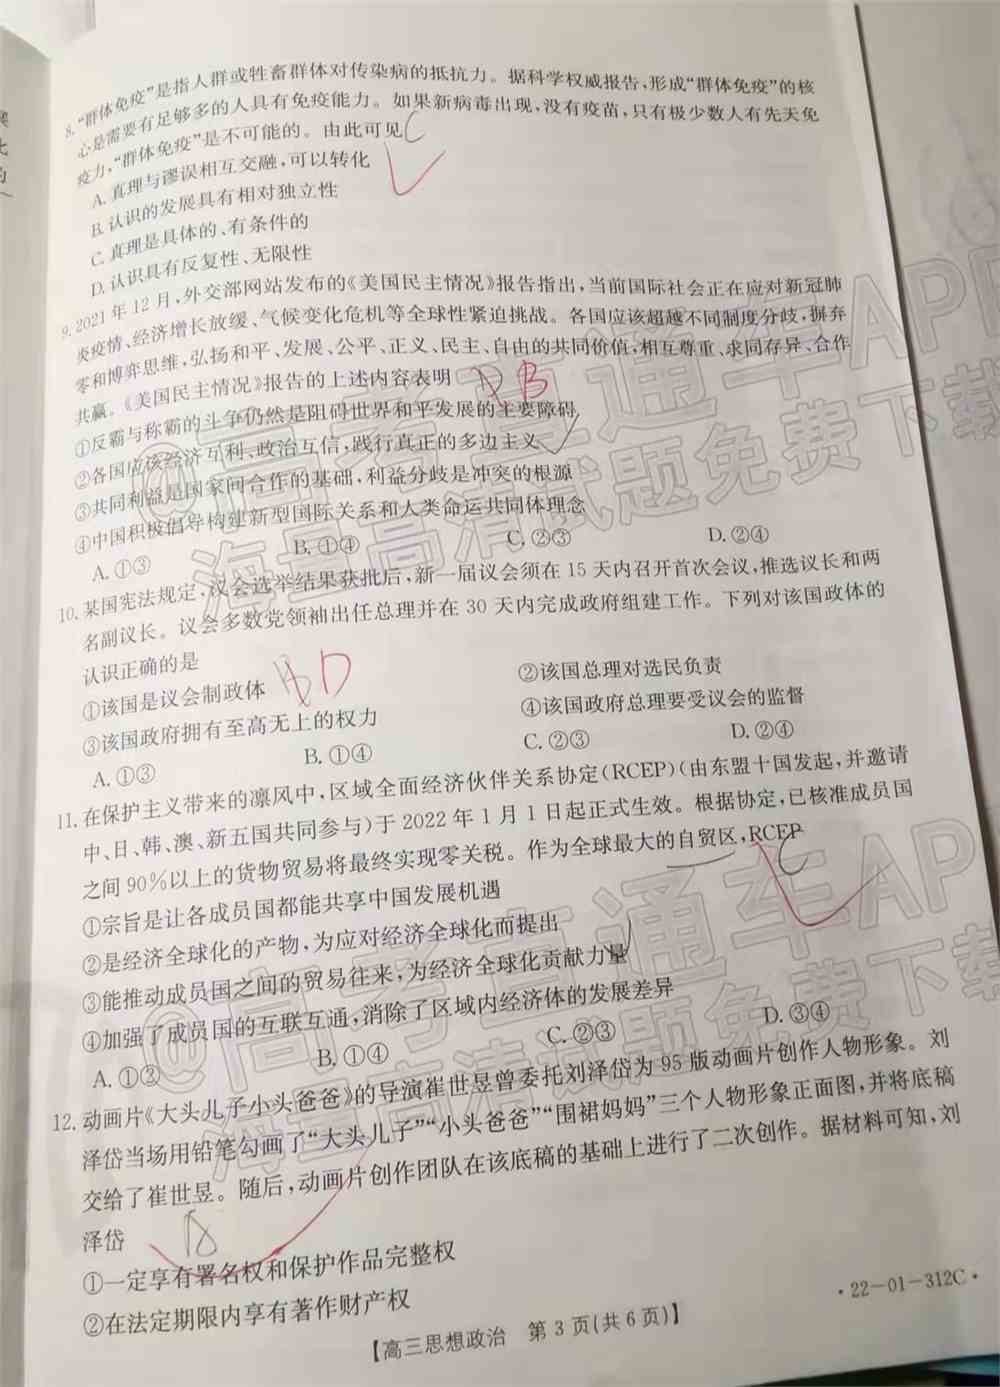 8.“群体免疫”是指人群或牲畜群体对传染病的抵抗力。据科学权威报告,形成“群体免疫”的核
心是需要有足够多的人具有免疫能力。如果新病毒出现,没有疫苗,只有极少数人有先天免
疫力,“群体免疫”是不可能的。由此可见 C
A.真理与谬误相互交融,可以转化
B.认识的发展具有相对独立性
C.真理是具体的、有条件的
D.认识具有反复性、无限性
9.2021年12月,外交部网站发布的《美国民主情况》报告指出,当前国际社会正在应对新冠肺
炎疫情、经济增长放缓、气候变化危机等全球性紧迫挑战。各国应该超越不同制度分歧,摒弃
零和博弈思维,弘扬和平、发展、公平、正义、民主、自由的共同价值,相互尊重、求同存异、合作
共赢。《美国民主情况》报告的上述内容表明 B
①反霸与称霸的斗争仍然是阻碍世界和平发展的主要障碍
②各国应该经济互利、政治互信,践行真正的多边主义
③共同利益是国家间合作的基础,利益分歧是冲突的根源
④中国积极倡导构建新型国际关系和人类命运共同体理念
A.①③ B.①④ C.②③ D.②④
10.某国宪法规定,议会选举结果获批后,新一届议会须在15天内召开首次会议,推选议长和两
名副议长。议会多数党领袖出任总理并在30天内完成政府组建工作。下列对该国政体的
认识正确的是 D
①该国是议会制政体 ②该国总理对选民负责
③该国政府拥有至高无上的权力 ④该国政府总理要受议会的监督
A.①③ B.①④ C.②③ D.②④
11.在保护主义带来的凛风中,区域全面经济伙伴关系协定(RCEP)(由东盟十国发起,并邀请
中、日、韩、澳、新五国共同参与)于2022年1月1日起正式生效。根据协定,已核准成员国
之间90%以上的货物贸易将最终实现零关税。作为全球最大的自贸区,RCEP C
①宗旨是让各成员国都能共享中国发展机遇
②是经济全球化的产物,为应对经济全球化而提出
③能推动成员国之间的贸易往来,为经济全球化贡献力量
④加强了成员国的互联互通,消除了区域内经济体的发展差异
A.①② B.①④ C.②③ D.③④
12.动画片《大头儿子小头爸爸》的导演崔世昱曾委托刘泽岱为95版动画片创作人物形象。刘
泽岱当场用铅笔勾画了“大头儿子”“小头爸爸”“围裙妈妈”三个人物形象正面图,并将底稿
交给了崔世昱。随后,动画片创作团队在该底稿的基础上进行了二次创作。据材料可知,刘
泽岱
①一定享有署名权和保护作品完整权
②在法定期限内享有著作财产权
【高三思想政治 第3页(共6页)】
·22-01-312C·
@高考直通车APP
海量高清试题免费下载
@高考直通车APP
海量高清试题免费下载